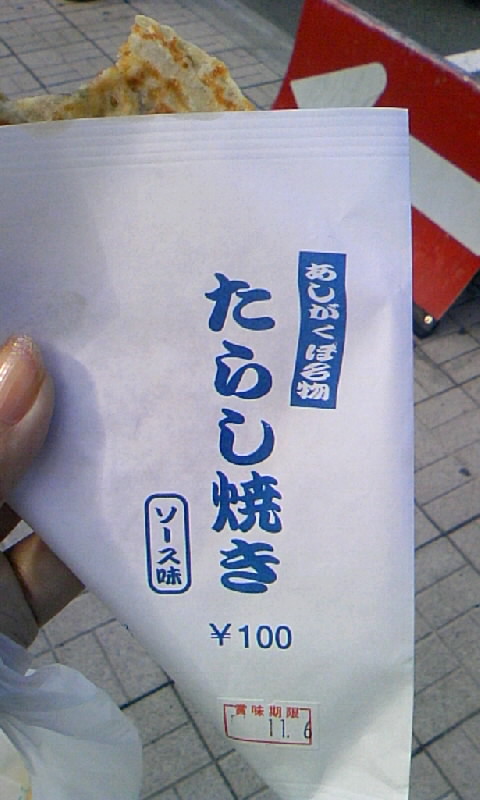 あしがくぼ名物
たらし焼き
ソース味
￥100
賞味期限
11. 6